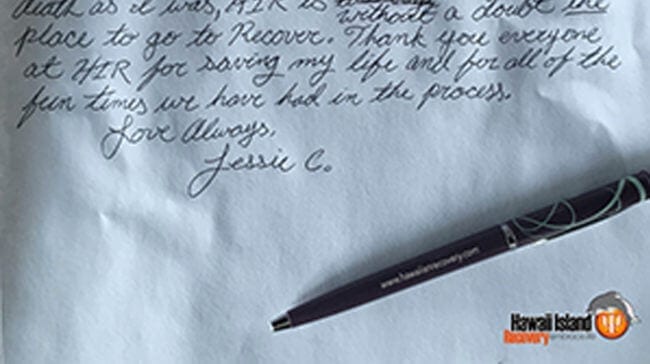 death as it was, HIR is without a doubt the
place to go to Recover. Thank you everyone
at HIR for saving my life and for all of the
fun times we have had in the process.
Love Always,
Jessie C.
www.hawaiianrecovery.com
Hawaii Island
Recovery